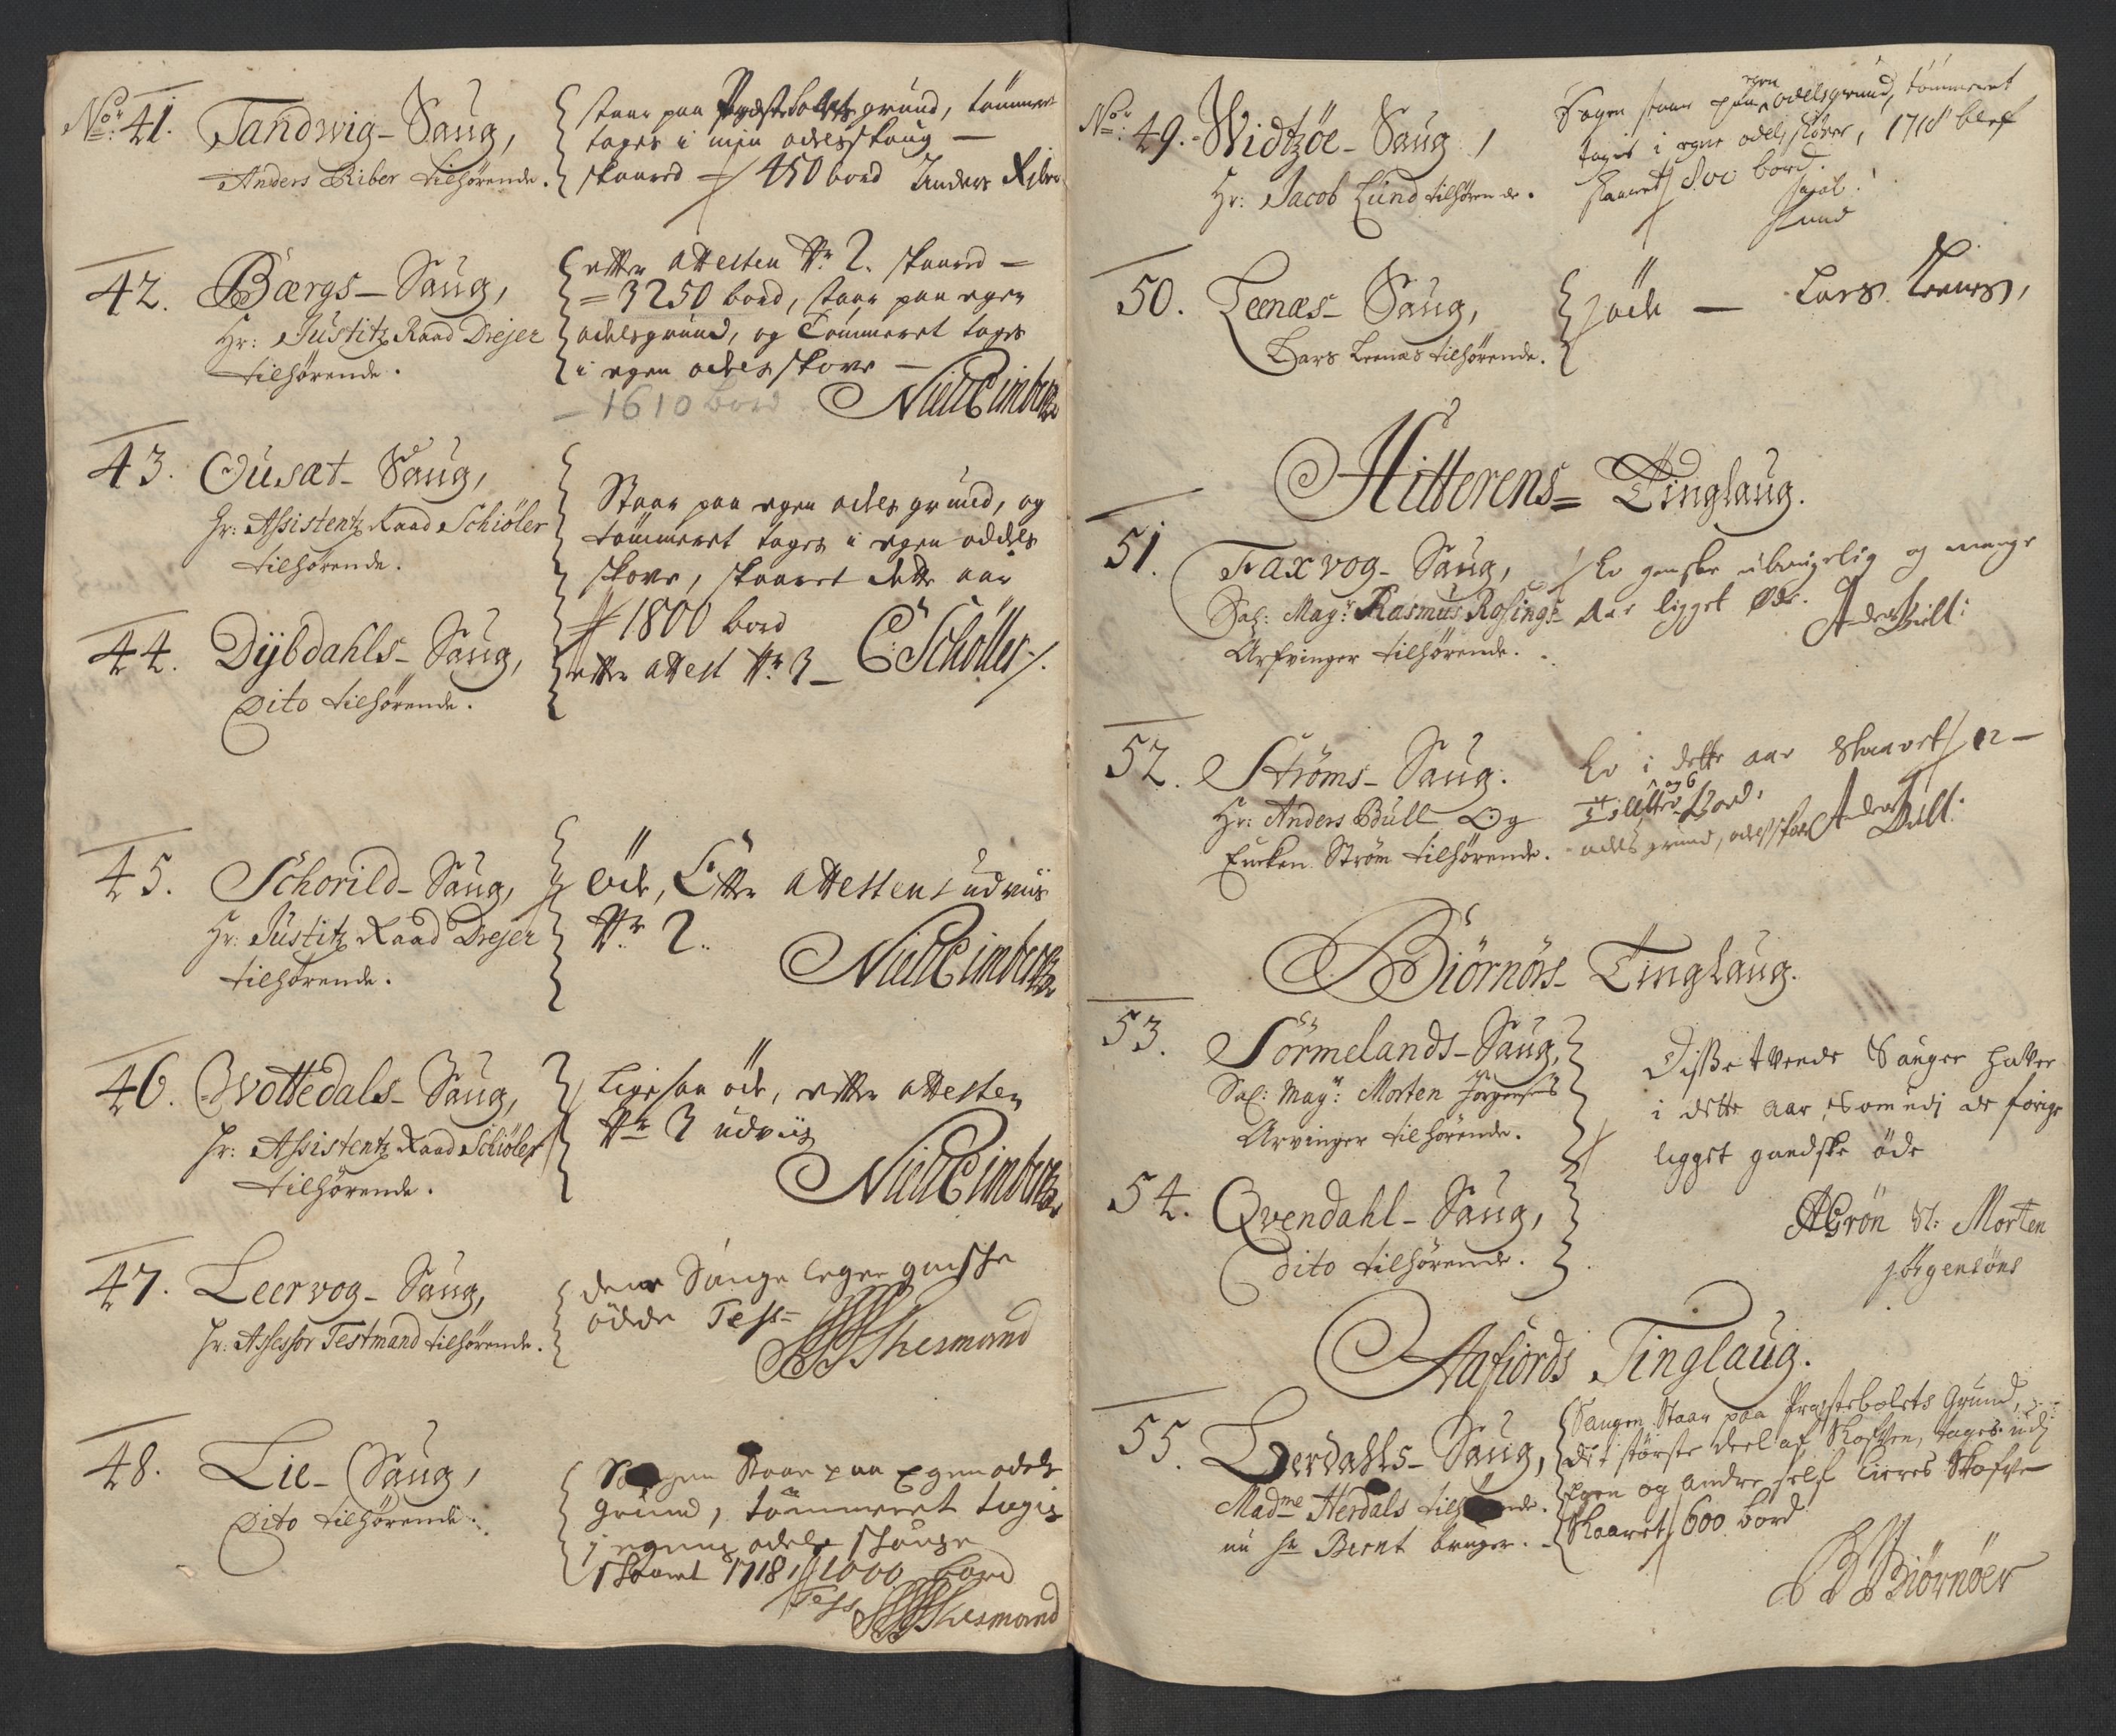 No: 41. Tandwig- Saug,
Anders Riber tilhørende.
staar paa Præstebolets grund, tømmeret
tages i min odelsskoug —
skaared — 450 bord Anders Riber
42. Bærgs- Saug,
Hr: Justitz Raad Drejer
tilhørende.
efter attesten Nr. 2. skaared —
= 3250 bord, staar paa egen
odelsgrund, og Tømmeret tages
i egen odels skove —
— 1610 bord
43. Ousæt- Saug,
Hr: Assistentz Raad Schiøler
tilhørende.
Staar paa egen odels grund, og
tømmeret tages i egen oddels
skove, skaaret dette aar
1800 bord
efter attest Nr. 3 — C: Schøller
44. Dÿbdahls- Saug,
Dito tilhørende.
45. Schorild- Saug,
Hr: Justitz Raad Drejer
tilhørende.
öde, Efter attestens udviis
Nr. 2.
46. Qvottedals- Saug,
Hr: Assistentz Raad Schiøler
tilhørende.
Ligesaa öde, efter attesten
Nr. 3 udviis
47. Leervog- Saug,
Hr: Assessor Testmand tilhørende.
denne Sauge leger ganske
ödde Tess=
48. Lie- Saug,
Dito tilhørende.
Saugen Staar paa Egen odels
grund, tømmeret tagis
j egene odels skouge
skaaret 1718, 1000 bord
Tess
No: 49. Widtzöe- Saug,
Hr: Jacob Lund tilhørende.
Sagen staar paa egen odelsgrund, tömmeret
tages i egne odels skove, 1718 blef
skaaret 800 bord.
Jacob
Lund
50. Leenæs- Saug,
Lars Leenæs tilhørende.
öde — Lars Leenes,
Hitterens= Tinglaug.
51. Faxvog- Saug,
Sal: May: Rasmus Rosings-
Arfvinger tilhørende.
Er ganske ubrugelig og mange
Aar ligget øde.
52. Ströms- Saug.
Hr: Anders Bull Og
Eucken Ström tilhørende.
Er i dette aar skaaret 12 —
og 6
Tölfter Bord.
odels grund, odels skov
Biörnörs- Tinglaug.
53. Sörmelands- Saug,
Sal: May: Morten Jörgensens
Arvinger tilhørende.
Disse tvende Sauger haver
i dette aar, Som udj de forige
ligget gandske öde
AGrön Sl: Morten
Jörgensöns
54. Qvendahl- Saug,
Dito tilhørende.
Aafiords Tinglaug.
55. Herdahls- Saug,
Madme Herdals tilhørende.
nu Hr Bernt bruger.
Saugen Staar paa Præstebolets Grund,
det störste deel af Skofven, tages udj
Egen og andre self Eieres Skofve
Skaaret 600 bord
Biörnöer